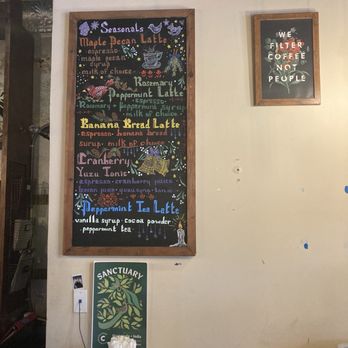 Seasonals
Maple Pecan Latte
espresso
maple pecan
syrup
milk of choice
Rosemary
Peppermint Latte
espresso
Rosemary + Peppermint syrup
milk of choice
Banana Bread Latte
espresso banana bread
syrup milk of choice
Cranberry
Yuzu Tonic
espresso cranberry juice
tonic
Peppermint Tea Latte
vanilla syrup cocoa powder
peppermint tea
WE
FILTER
COFFEE
NOT
PEOPLE
SANCTUARY